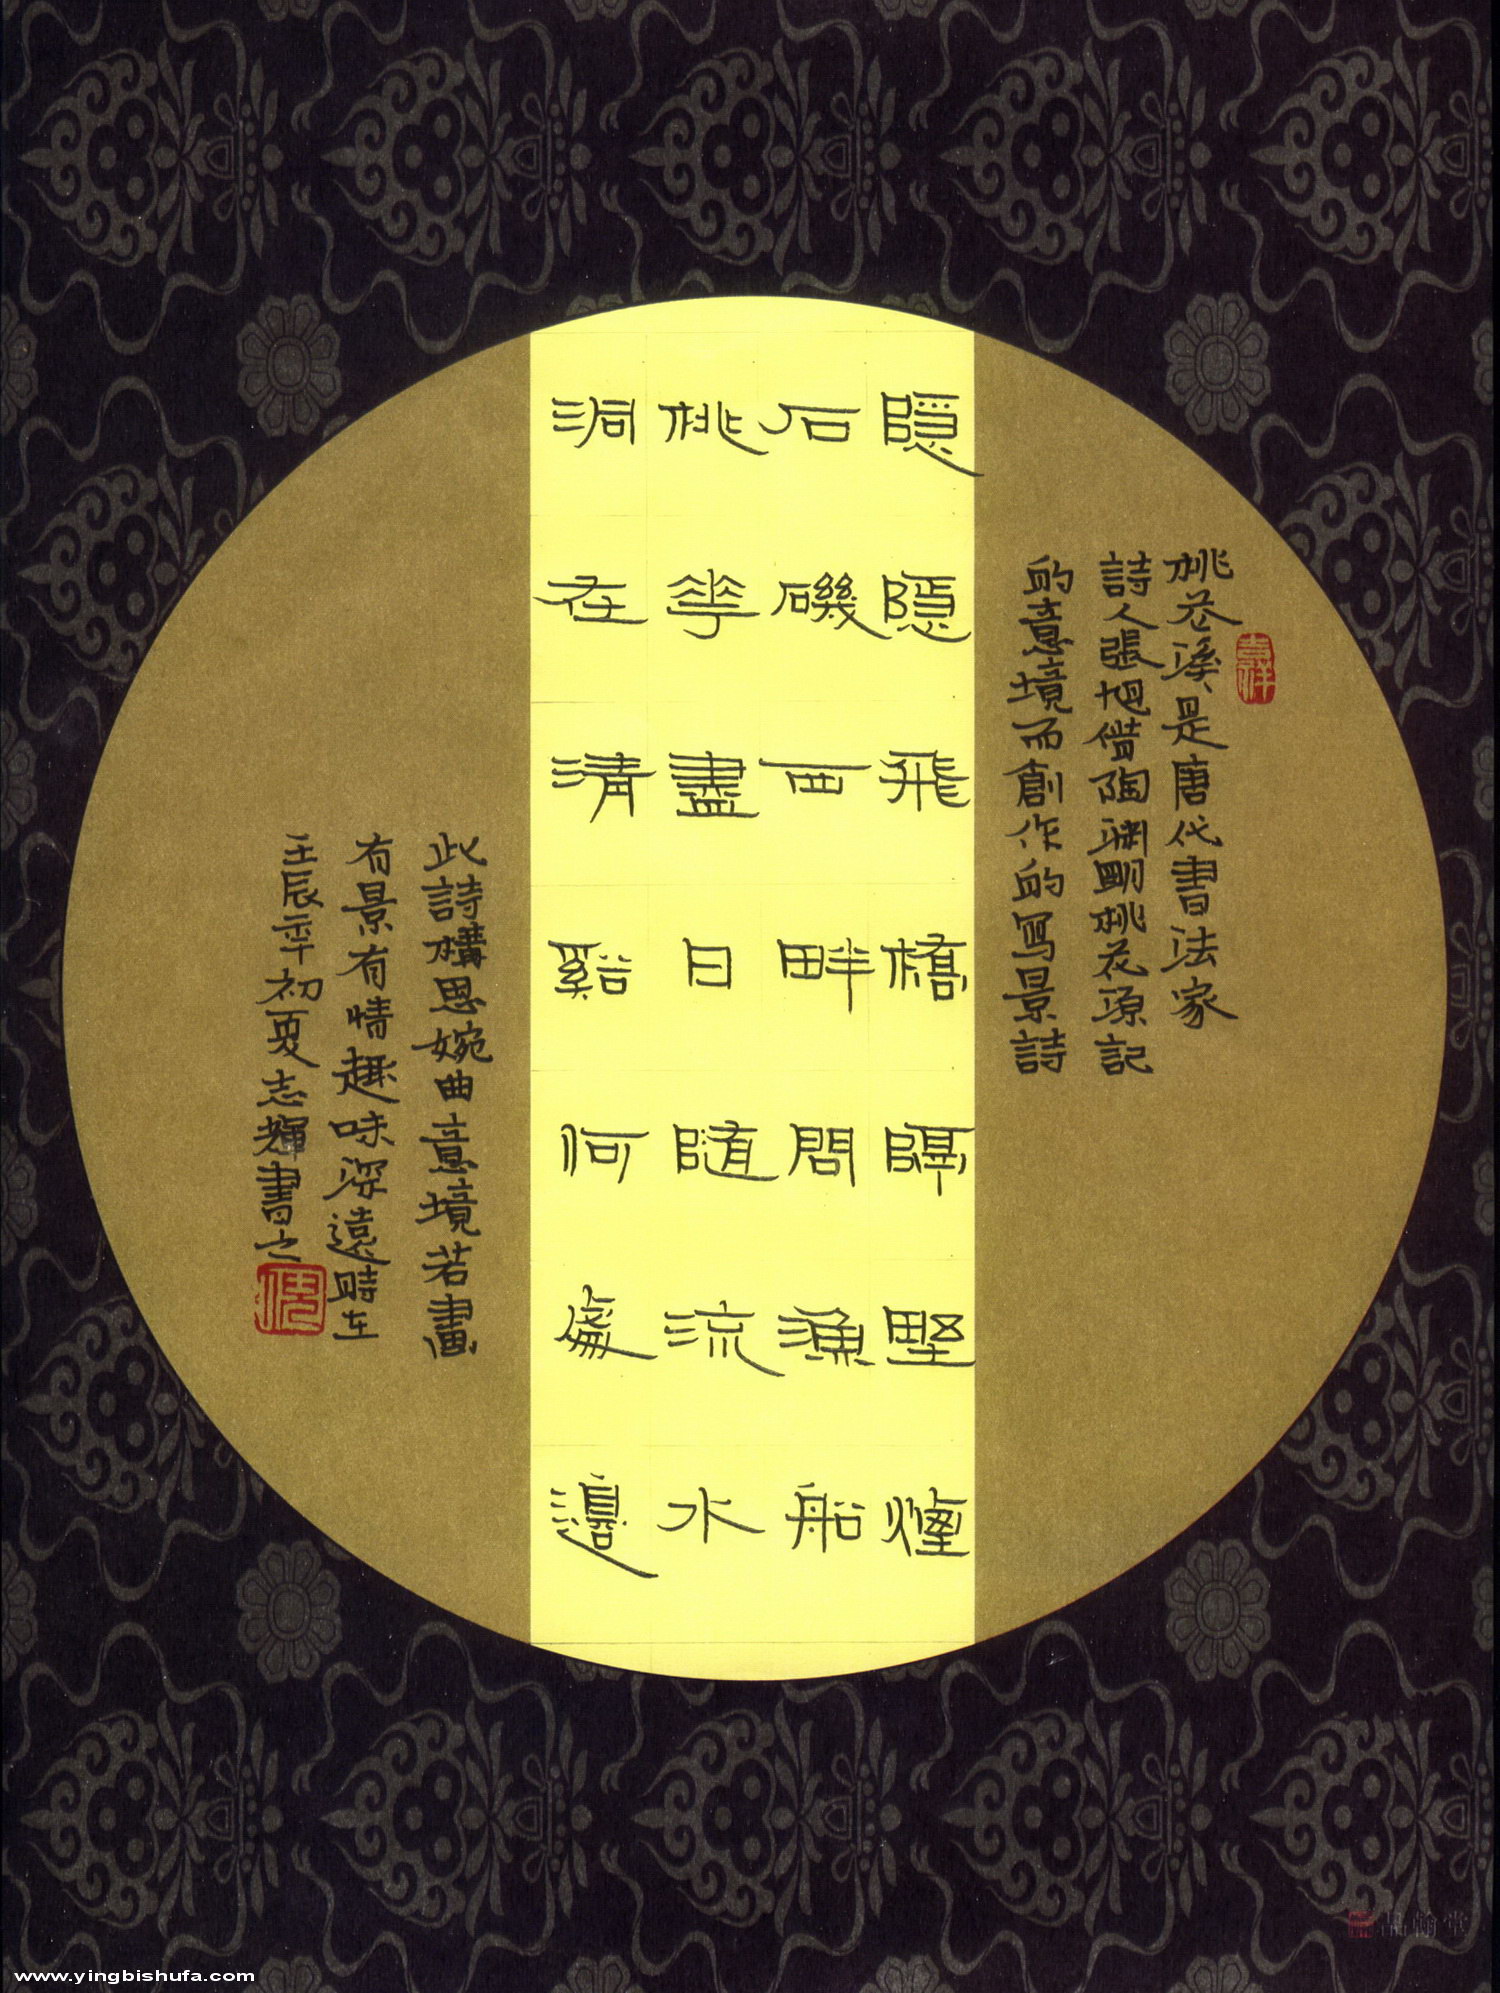 桃花溪是唐代書法家
詩人張旭借陶渊明桃花源記
的意境而創作的寫景詩
隱隱飛橋隔野煙
石磯西畔問漁船
桃花盡日隨流水
洞在清谿何處邊
此詩構思婉曲意境若畫
有景有情趣味深遠時在
壬辰年初夏志輝書之
吉祥
倪
品翰堂
www.yingbishufa.com